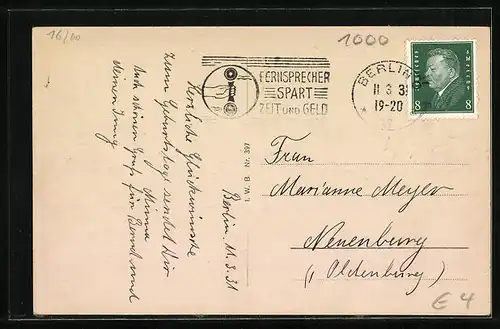 16/00
1000
FERNSPRECHER
SPART
ZEIT UND GELD
BERLIN
11 3 31
19-20
8 8
Berlin, 11.3.31
Herzliche Glückwünsche
zum Geburtstage sendet Dir
Minna
Auch schönen Gruß für Bernd und
deinen
L. W. B. Nr. 397
Frau
Marianne Meyer
Neuenburg
(i. Oldenburg)
€ 4